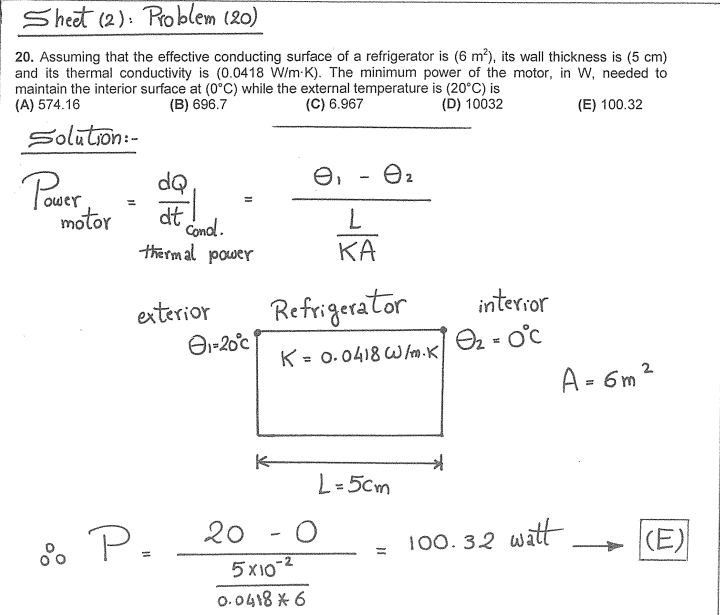 Sheet (2): Problem (20)
20. Assuming that the effective conducting surface of a refrigerator is (6 m²), its wall thickness is (5 cm)
and its thermal conductivity is (0.0418 W/m·K). The minimum power of the motor, in W, needed to
maintain the interior surface at (0°C) while the external temperature is (20°C) is
(A) 574.16 (B) 696.7 (C) 6.967 (D) 10032 (E) 100.32
Solution:-
Power motor = dQ/dt | Cond. = θ₁ - θ₂ / L/KA
thermal power
exterior Refrigerator interior
θ₁=20°C K = 0.0418 W/m.K θ₂ = 0°C
A = 6m²
L = 5cm
∴ P = 20 - 0 / 5×10⁻² / 0.0418 * 6 = 100.32 watt → (E)